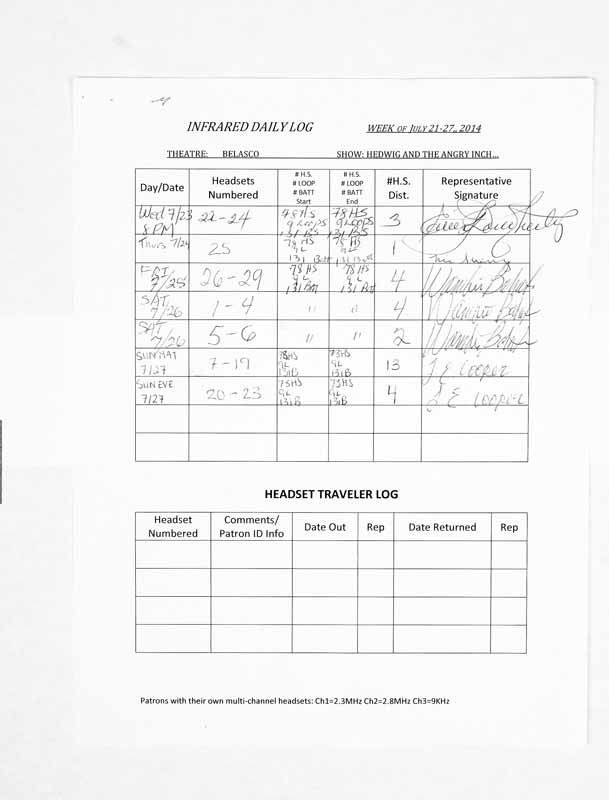 INFRARED DAILY LOG WEEK OF JULY 21-27,, 2014
THEATRE: BELASCO SHOW: HEDWIG AND THE ANGRY INCH...
Day/Date Headsets Numbered # H.S. # LOOP # BATT Start # H.S. # LOOP # BATT End #H.S. Dist. Representative Signature
Wed 7/23 8PM 22-24 78HS 9 Loops 131 BS 78HS 9 Loops 131 BS 3
Thurs 7/24 25 78 HS 9L 131 Batt 78 HS 9L 131 Batt 1
FRI 7/25 26-29 78 HS 9L 131 Batt 78 HS 9L 131 Batt 4
SAT 7/26 1-4 " " 4
SAT 7/26 5-6 " " 2
SUN MAT 7/27 7-19 78HS 9L 131B 73HS 9L 131B 13 J E Cooper
SUN EVE 7/27 20-23 73HS 9L 131B 73HS 9L 131B 4 J E Cooper
HEADSET TRAVELER LOG
Headset Numbered Comments/ Patron ID Info Date Out Rep Date Returned Rep
Patrons with their own multi-channel headsets: Ch1=2.3MHz Ch2=2.8MHz Ch3=9KHz